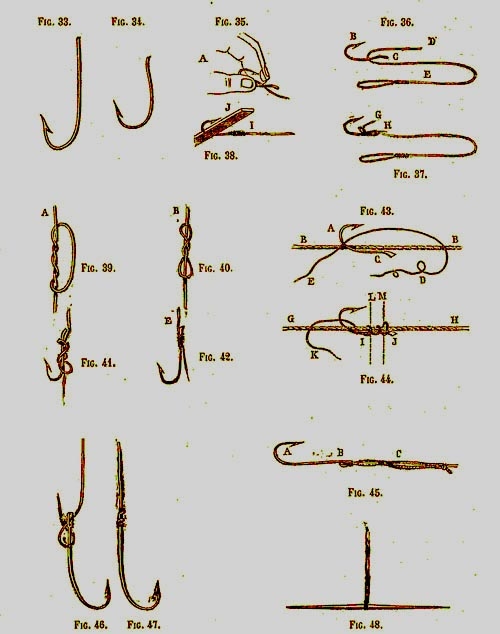 FIG. 33. FIG. 34. FIG. 35. FIG. 36.
A
B D
C
E
J
I
FIG. 38.
G
H
FIG. 37.
A
FIG. 39.
B
FIG. 40.
FIG. 43.
B A B
C
E D
FIG. 41.
E
FIG. 42.
L M
G H
I J
K
FIG. 44.
A B C
FIG. 45.
FIG. 46. FIG. 47. FIG. 48.